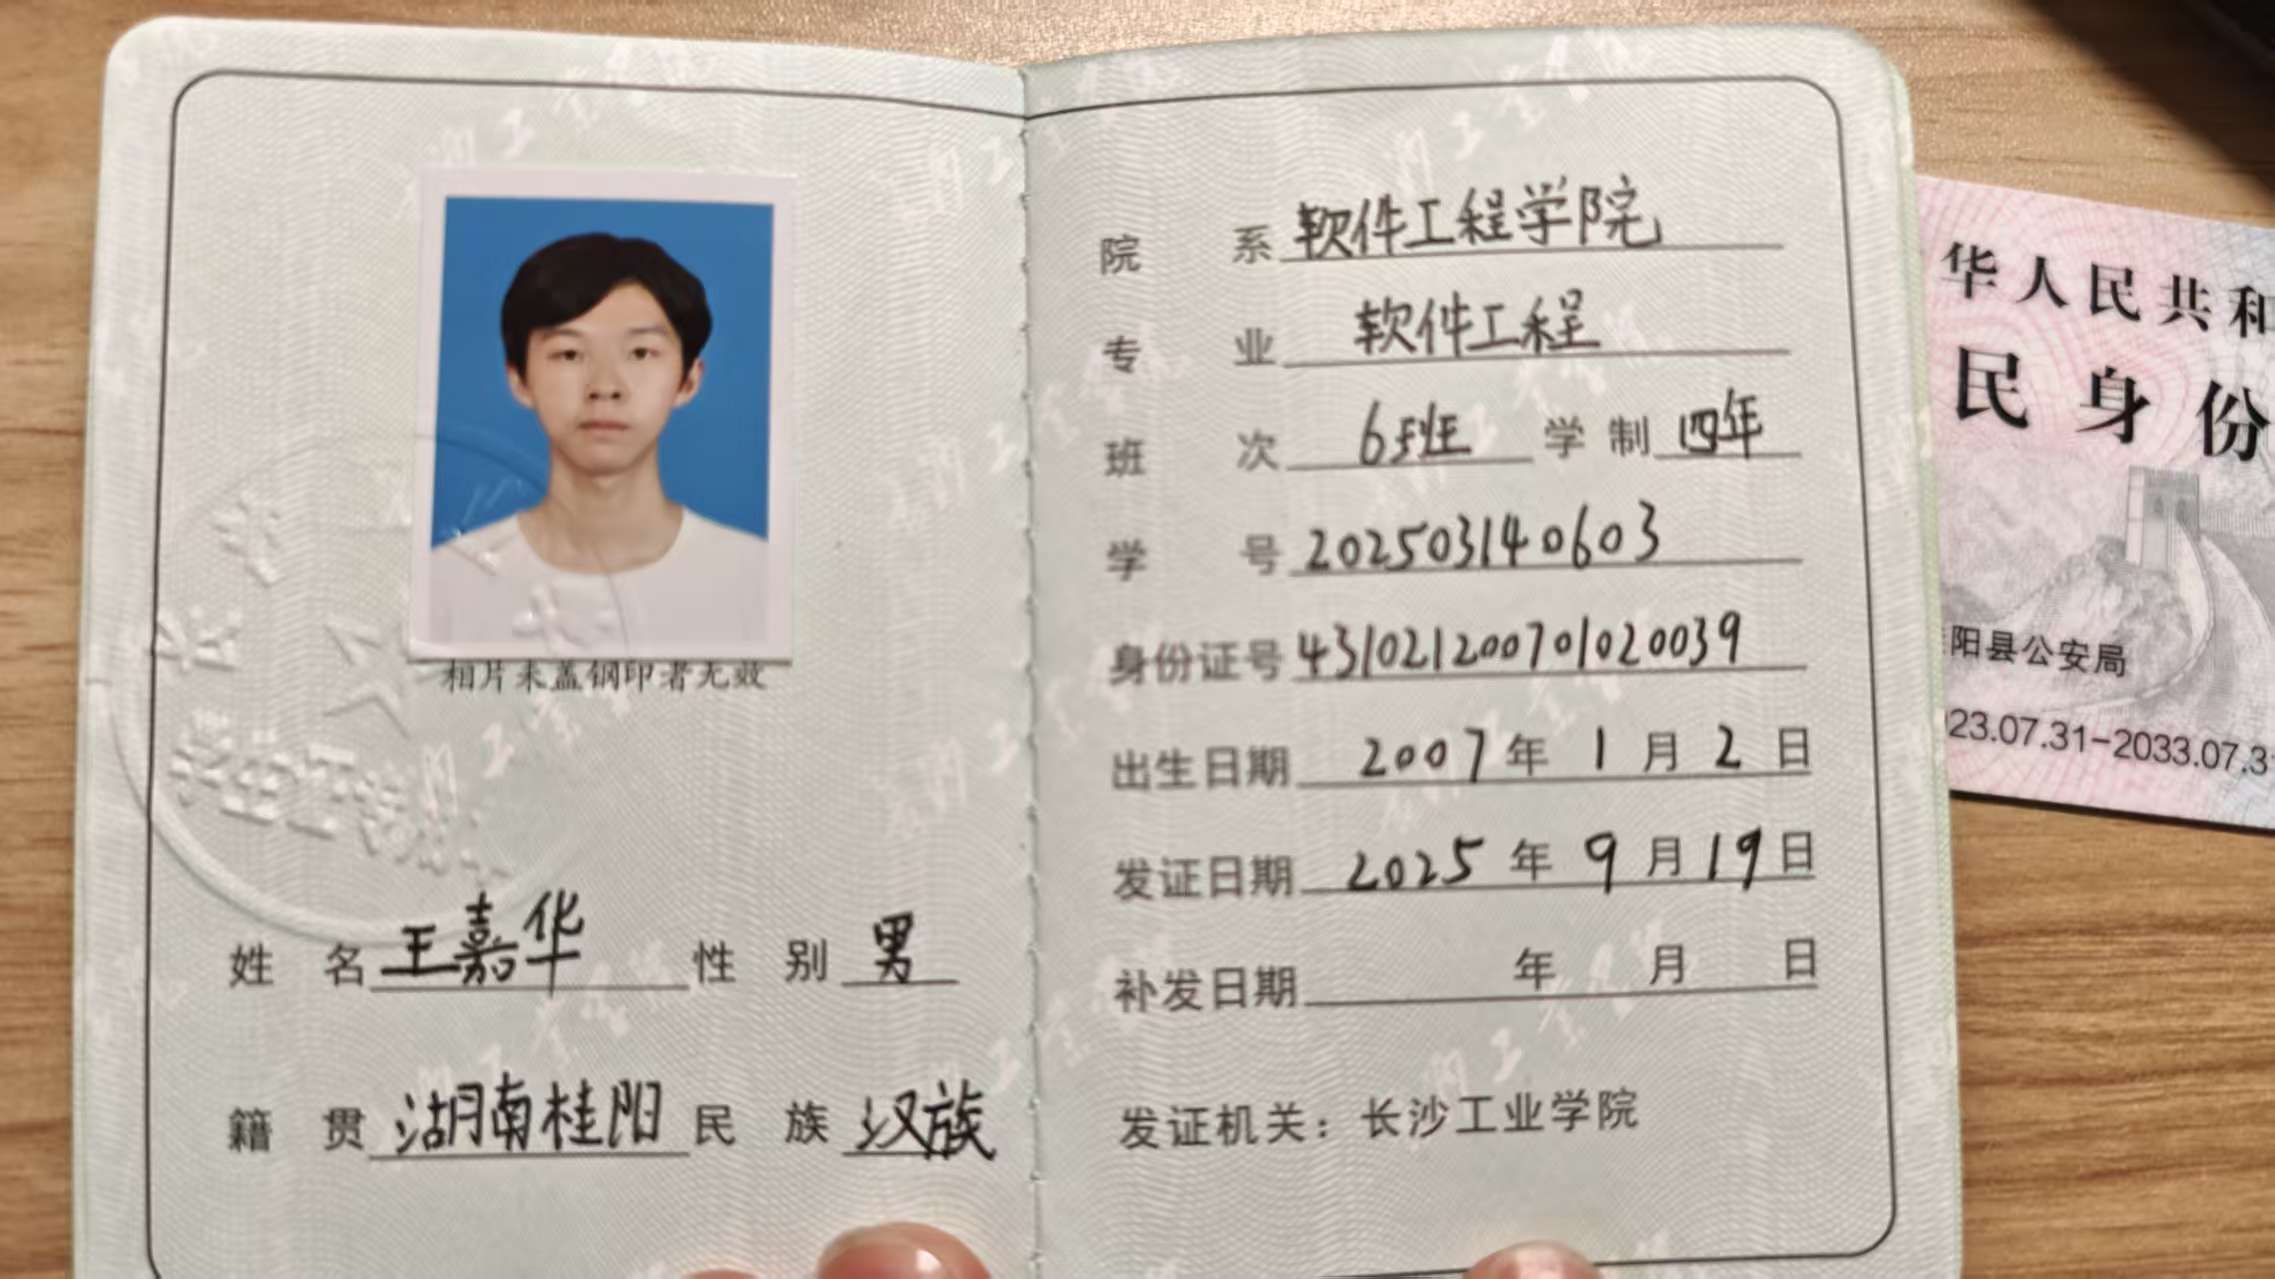 相片未盖钢印者无效
姓 名 王嘉华 性 别 男
籍 贯 湖南桂阳 民 族 汉族
院 系 软件工程学院
专 业 软件工程
班 次 6班 学 制 四年
学 号 202503140603
身份证号 431021200701020039
出生日期 2007 年 1 月 2 日
发证日期 2025 年 9 月 19 日
补发日期 年 月 日
发证机关：长沙工业学院
华人民共和
民身份
阳县公安局
23.07.31-2033.07.3